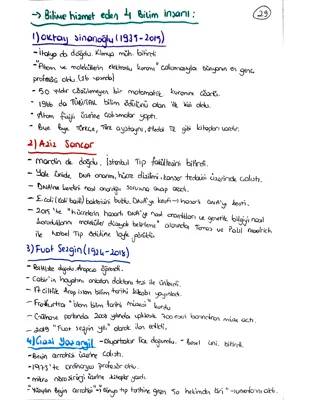 → Bilime hizmet eden 4 Bilim insanı:
29
1) Oktay Sinanoğlu (1934-2015)
- İtalya da doğdu. Kimya müh. bitirdi
- "Atom ve moleküllerin elektronlu kuramı" çalışmasıyla dünyanın en genç
profesörü oldu. (26 yaşında)
- 50 yıldır çözülmeyen bir matematik kuramını çözdü.
- 1966 da TÜBİTAK bilim ödülünü alan ilk kişi oldu.
- Atom fiziği üzerine çalışmalar yaptı.
- Bye Bye Türkçe, gibi kitapları vardır.
2) Aziz Sancar
- Mardin de doğdu, İstanbul Tıp fakültesini bitirdi.
- Yale üniv.de, DNA onarımı, hücre dizilimi, kanser tedavisi üzerinde çalıştı.
- DNA'nın kendini nasıl onardığı sorusuna cevap aradı.
- E.coli (koli basili) bakterisini buldu, DNA'yı kesti → hasarlı DNA'yı kesti.
- 2015 'te "Hücrelerin hasarlı DNA'yı nasıl onardıkları ve genetik bilgiyi nasıl
koruduklarını moleküler düzeyde belirleme" alanında Tomas ve Paul modrich
ile Nobel Tıp ödülüne layık görüldü.
3) Fuat Sezgin (1924-2018)
- Bitliste doğdu. Arapça öğrendi.
- Cabir'in hayatını anlatan doktora tezi ile ünlendi.
- 17 ciltlik Arap islam bilim tarihi kitabı yayınladı.
- Frankfurtta "islam bilim tarihi müzesi" kurdu
- Gülhane parkında 2008 yılında yaklaşık 700 eseri barındıran müze açtı.
- 2019 "Fuat sezgin yılı" olarak ilan edildi.
4) Gazi Yaşargil - Diyarbakır Lice doğumlu. - Basel üni. bitirdi.
- Beyin cerrahisi üzerine çalıştı.
- 1973'te ordinaryus profesör oldu.
- mikro nöroşirürji üzerine kitaplar yazdı.
- "Yüzyılın Beyin cerrahı" - "Dünya tıp tarihine geçen 50 hekimden biri" - unvanlarını aldı.